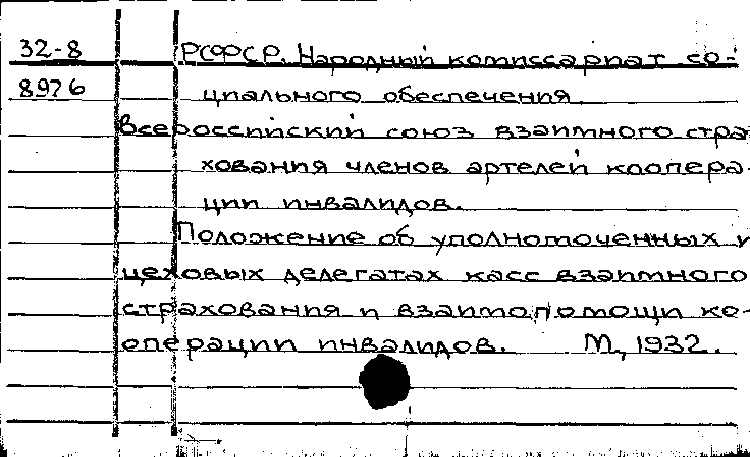 32-8 РСФСР. Народный комиссариат со-
8976 циального обеспечения
Всероссийский союз взаимного стра
хования членов артелей коопера-
ции инвалидов.
Положение об уполномоченных и
цеховых делегатах касс взаимного
страхования и взаимопомощи ко-
операции инвалидов. М., 1932.